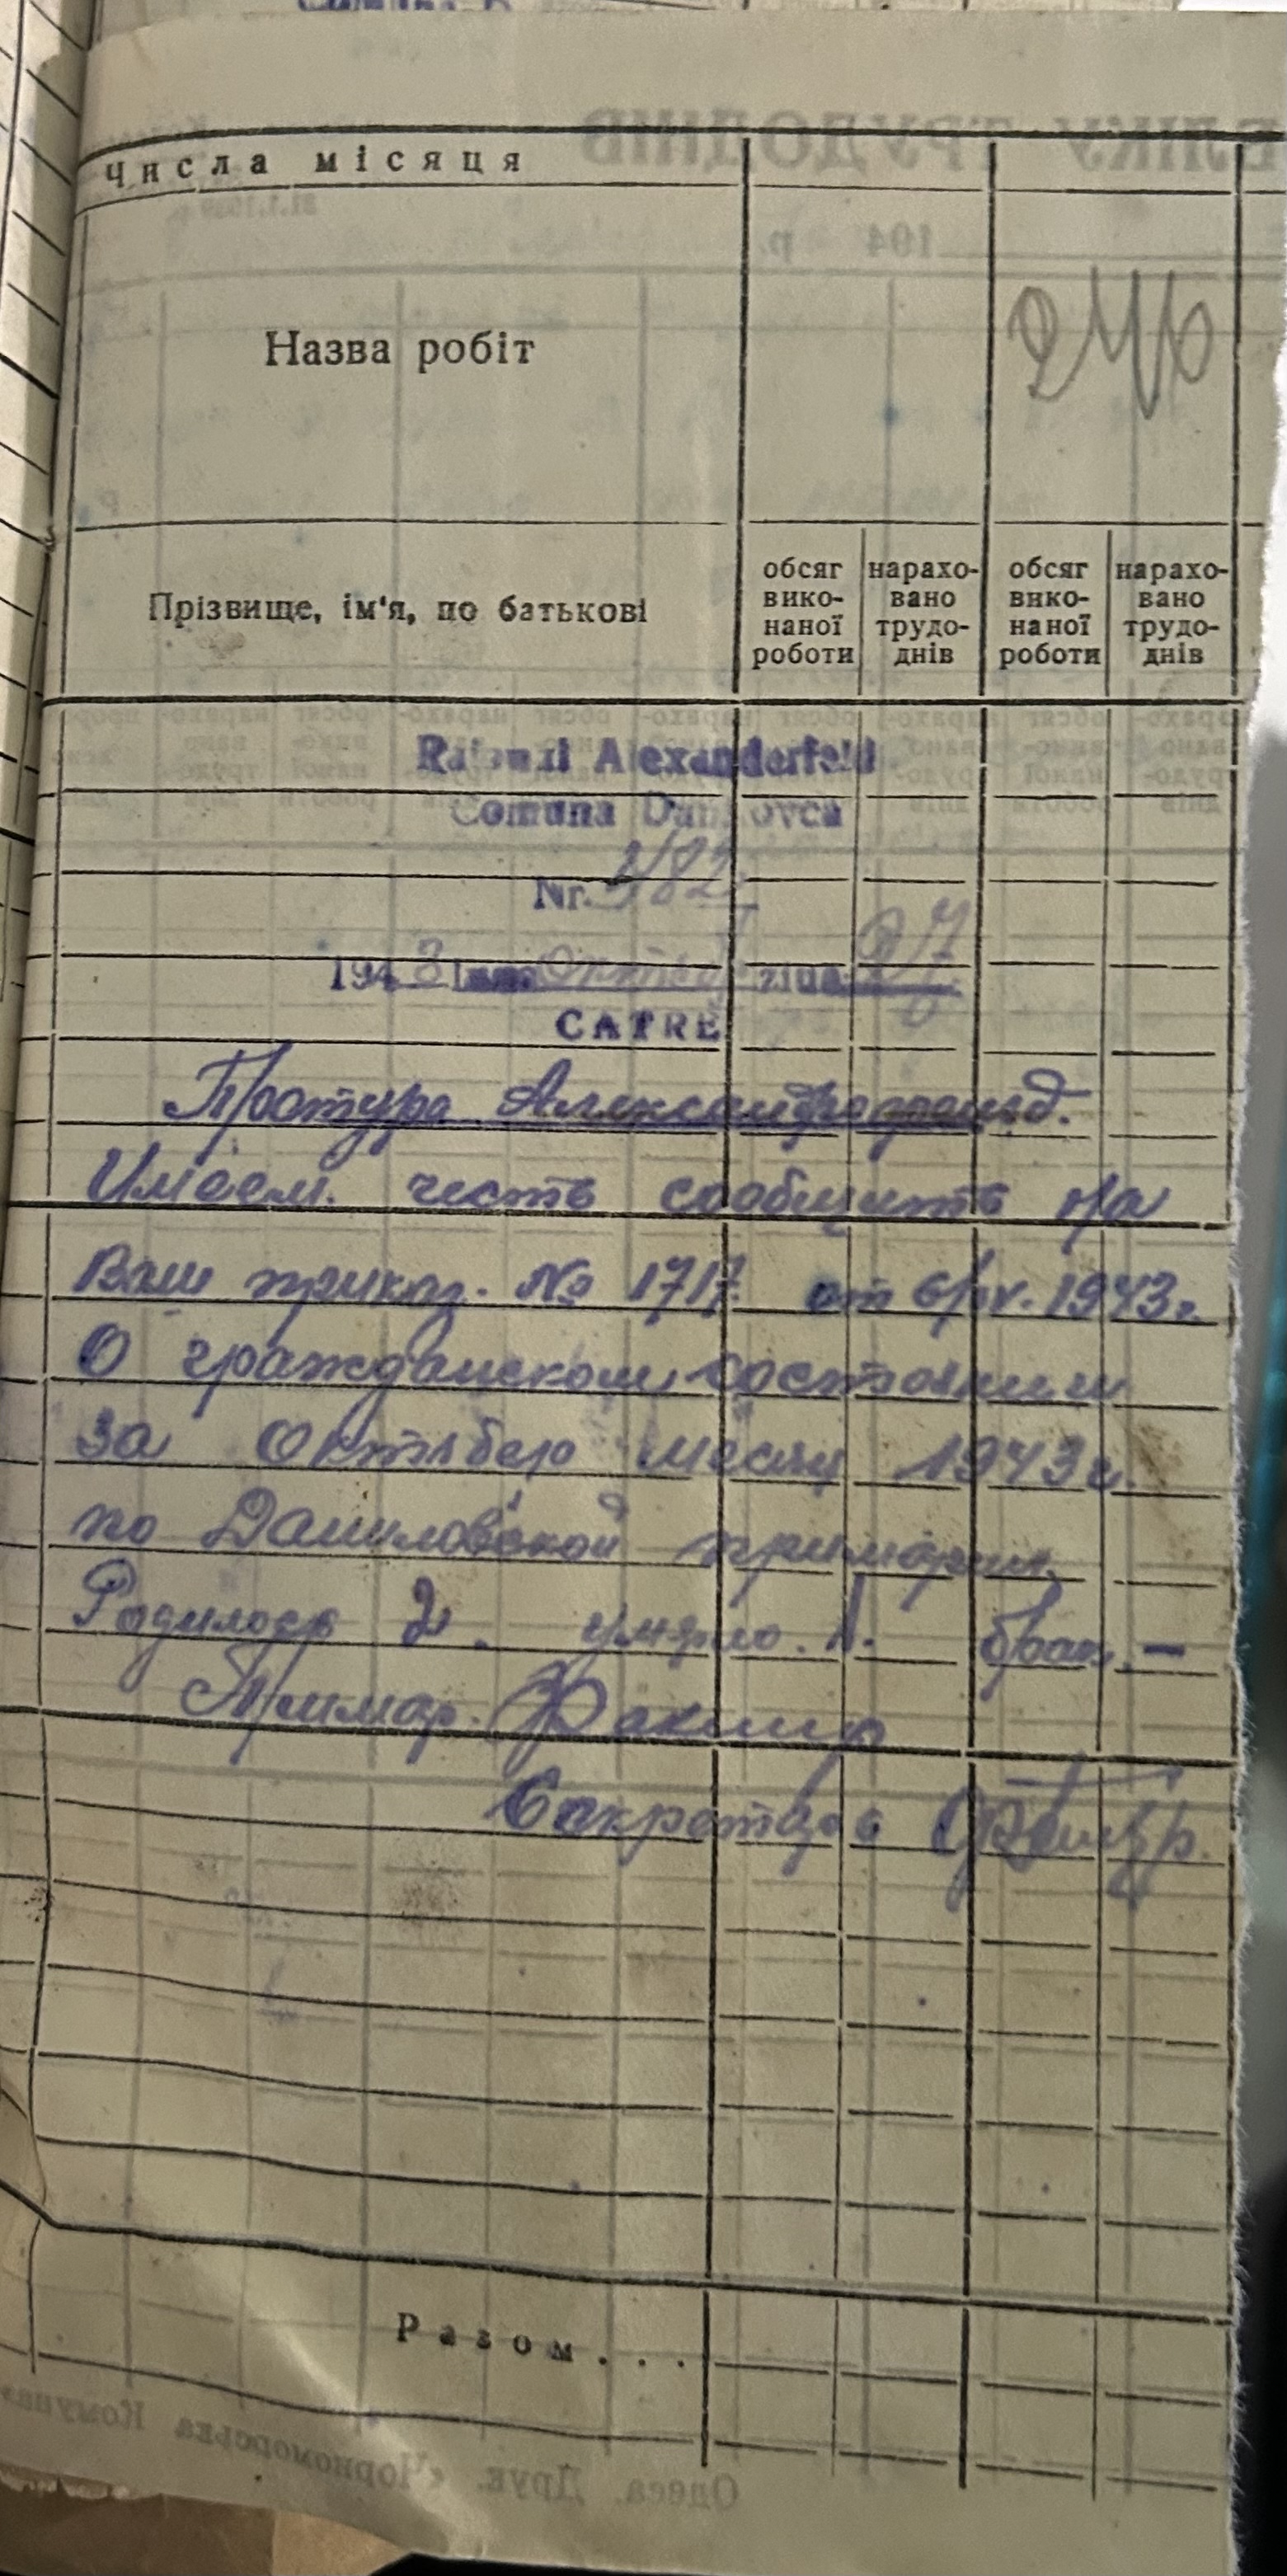 Числа місяця
246
Назва робіт
Прізвище, ім'я, по батькові
обсяг вико-наної роботи
нарахо-вано трудо-днів
обсяг вико-наної роботи
нарахо-вано трудо-днів
Raionul Alexanderfeld
Comuna Danilovca
Nr. 482
1943 luna октяб ziua 27
CATRE
Претура Александрфельд.
Имеем. честь сообщить на
Ваш приказ. № 1717. от 6/IV. 1943 г.
О гражданском состоянии
за Октябер месяц 1943 г.
по Даниловской примарии.
Родилось 2. умерло. 1. брак. —
Примар.
Секретарь
Разом...
Одеса. Друк. «Чорноморська Комуна»